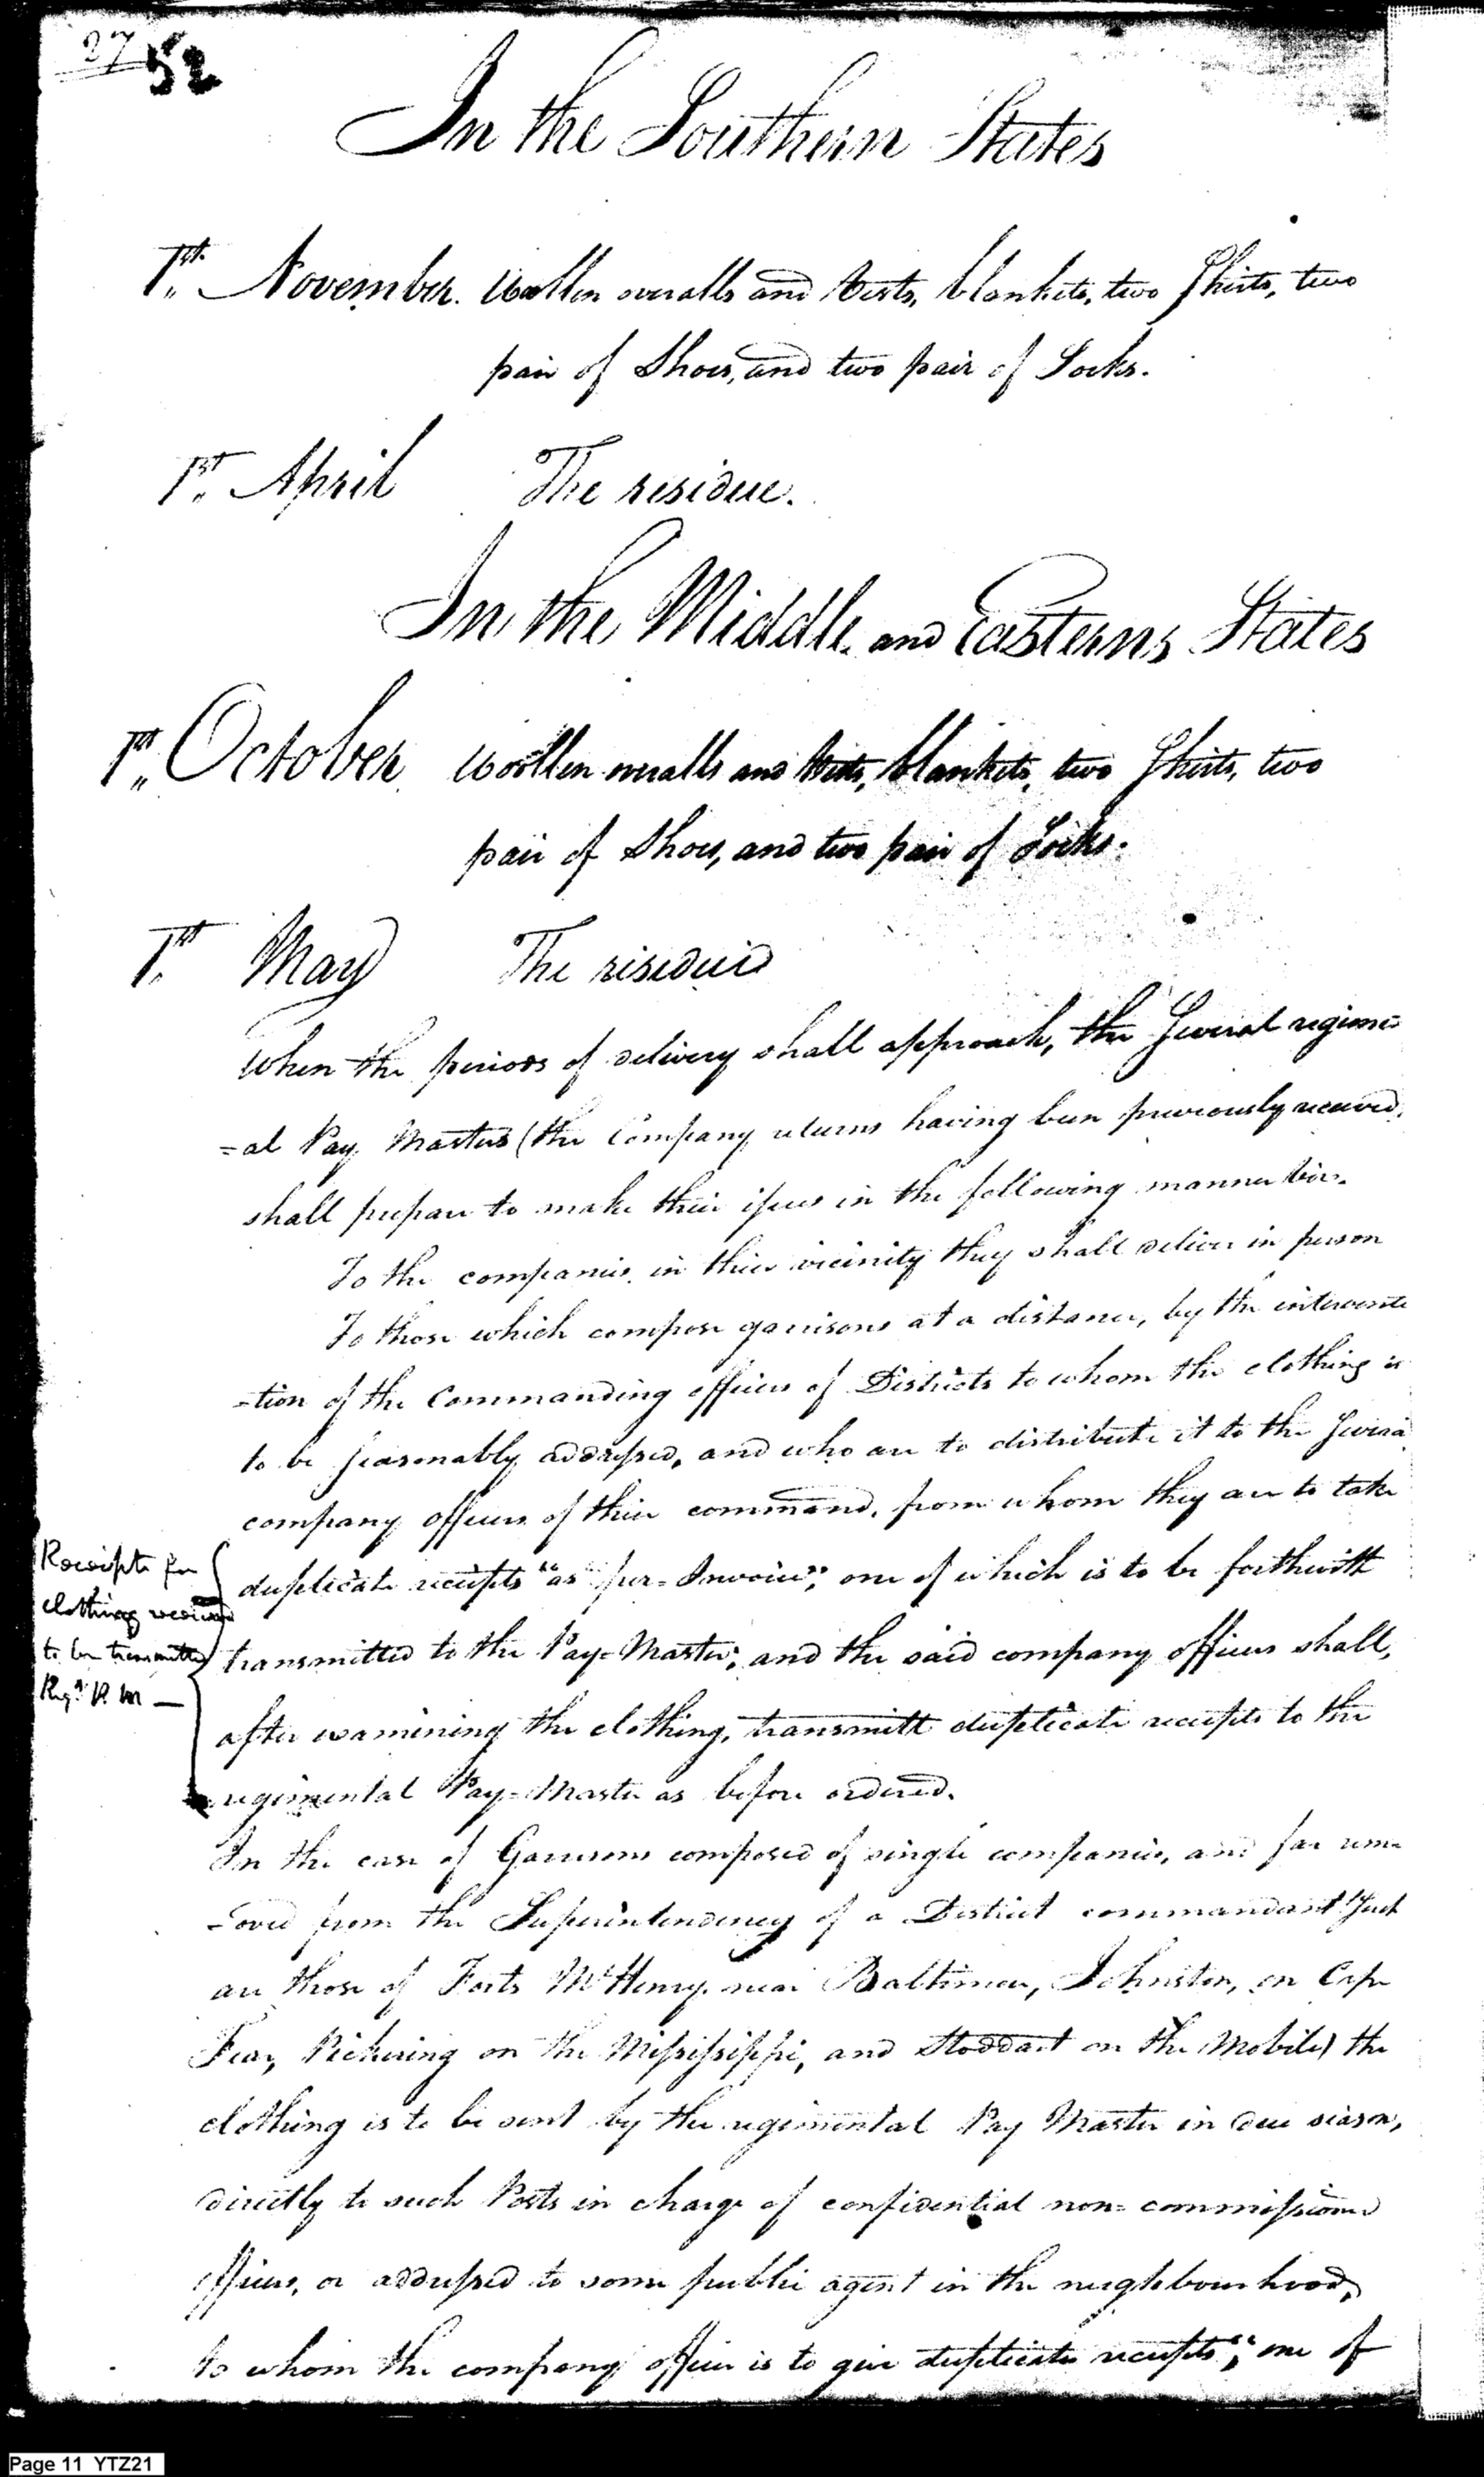 27 52
In the Southern States
1st. November. Woollen overalls and Vests, blankets, two Shirts, two
pair of Shoes, and two pair of Socks.
1st. April The residue.
In the Middle and Easterns States
1st. October Woollen overalls and Vests, blankets, two Shirts, two
pair of Shoes, and two pair of Socks.
1st. May The residue
When the periods of delivery shall approach, the Several regime=
=al Pay Masters (the Company returns having been previously received,
shall prepare to make their issues in the following manner Viz.
To the companies in their vicinity they shall deliver in person
To those which compose garrisons at a distance, by the interven
-tion of the Commanding officers of Districts to whom the clothing is
to be Seasonably addressed, and who are to distribute it to the Several
company officers of their command, from whom they are to take
duplicate receipts "as per=Invoice"; one of which is to be forthwith
transmitted to the Pay=Master; and the said company officers shall,
after examining the clothing, transmitt duplicate receipts to the
regimental Pay=Master as before ordered.
Receipts for
clothing received
to be transmitted
Regl. P. M —
In the case of Garrisons composed of single companies, and far rem=
=oved from the Superintendency of a District commandant (Such
are those of Forts McHenry near Baltimore, Johnston, on Cape
Fear, Pickering on the Mississippi, and Stoddart on the Mobile) the
clothing is to be sent by the regimental Pay Master in due season,
directly to such Posts in charge of confidential non=commissioned
officers, or addressed to some public agent in the neighbourhood,
to whom the company officer is to give duplicate receipts"; one of
Page 11 YTZ21